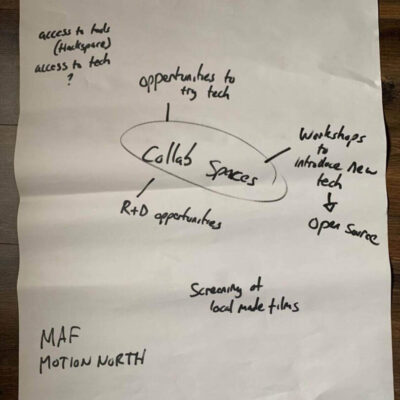 access to tools
(Hackspace)
access to tech
?
opportunities to
try tech
Collab Spaces
Workshops
to
introduce new
tech
Open Source
R+D opportunities
Screening of
local made films
MAF
MOTION NORTH